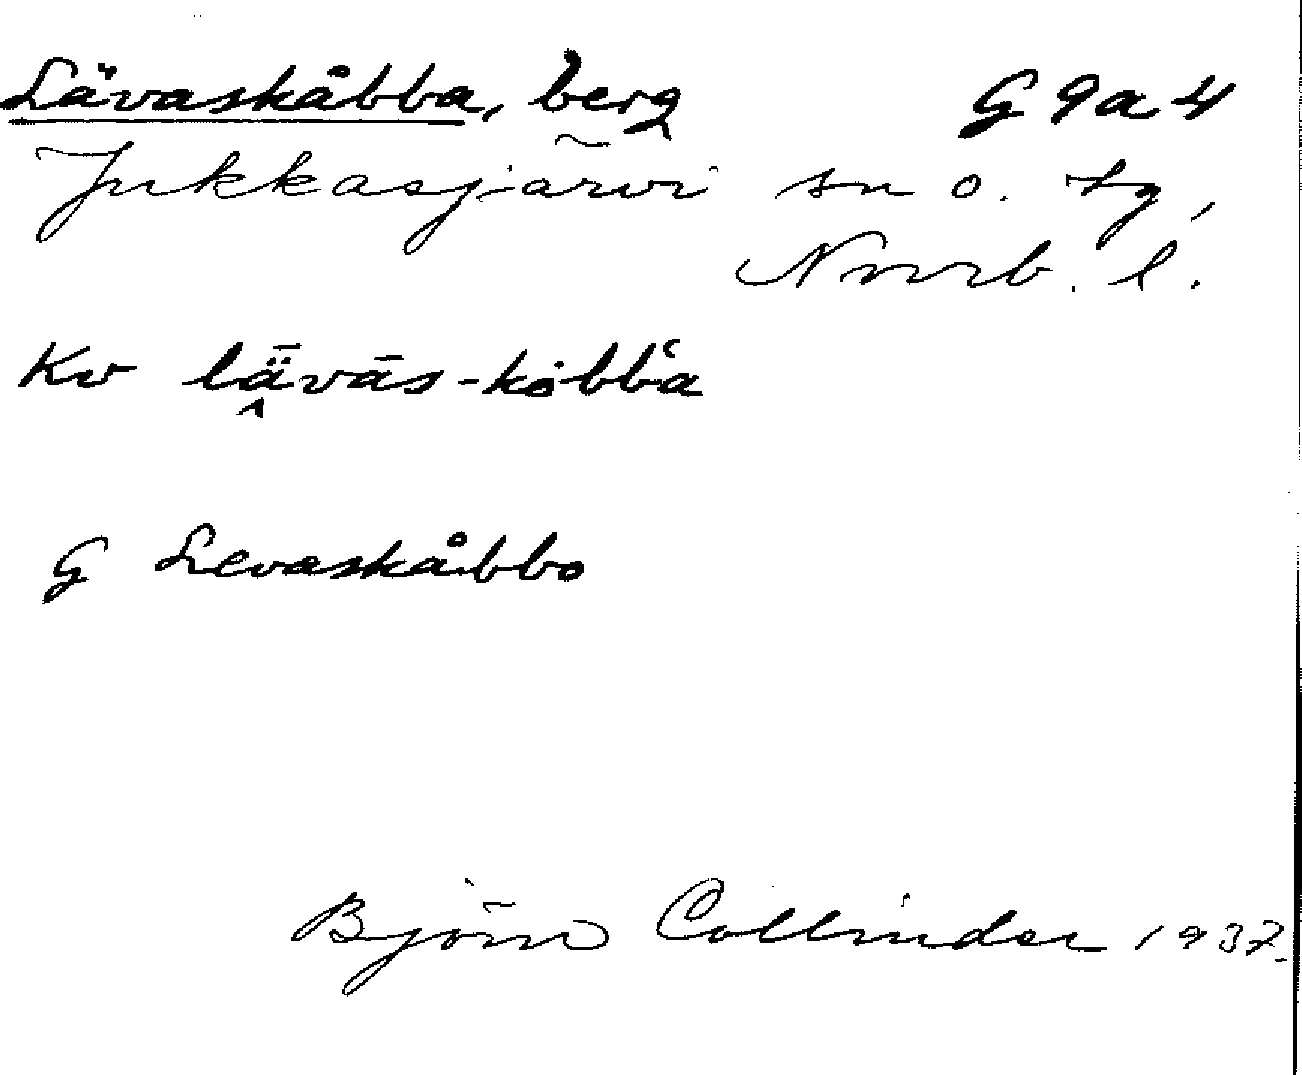 Lävaskåbba, berg G 9 a 4
Jukkasjärvi sn o. tg,
Norrb. l.
Kv lǟ̭vās-kȯbb̔a
G Levaskåbbo
Björn Collinder 1937.